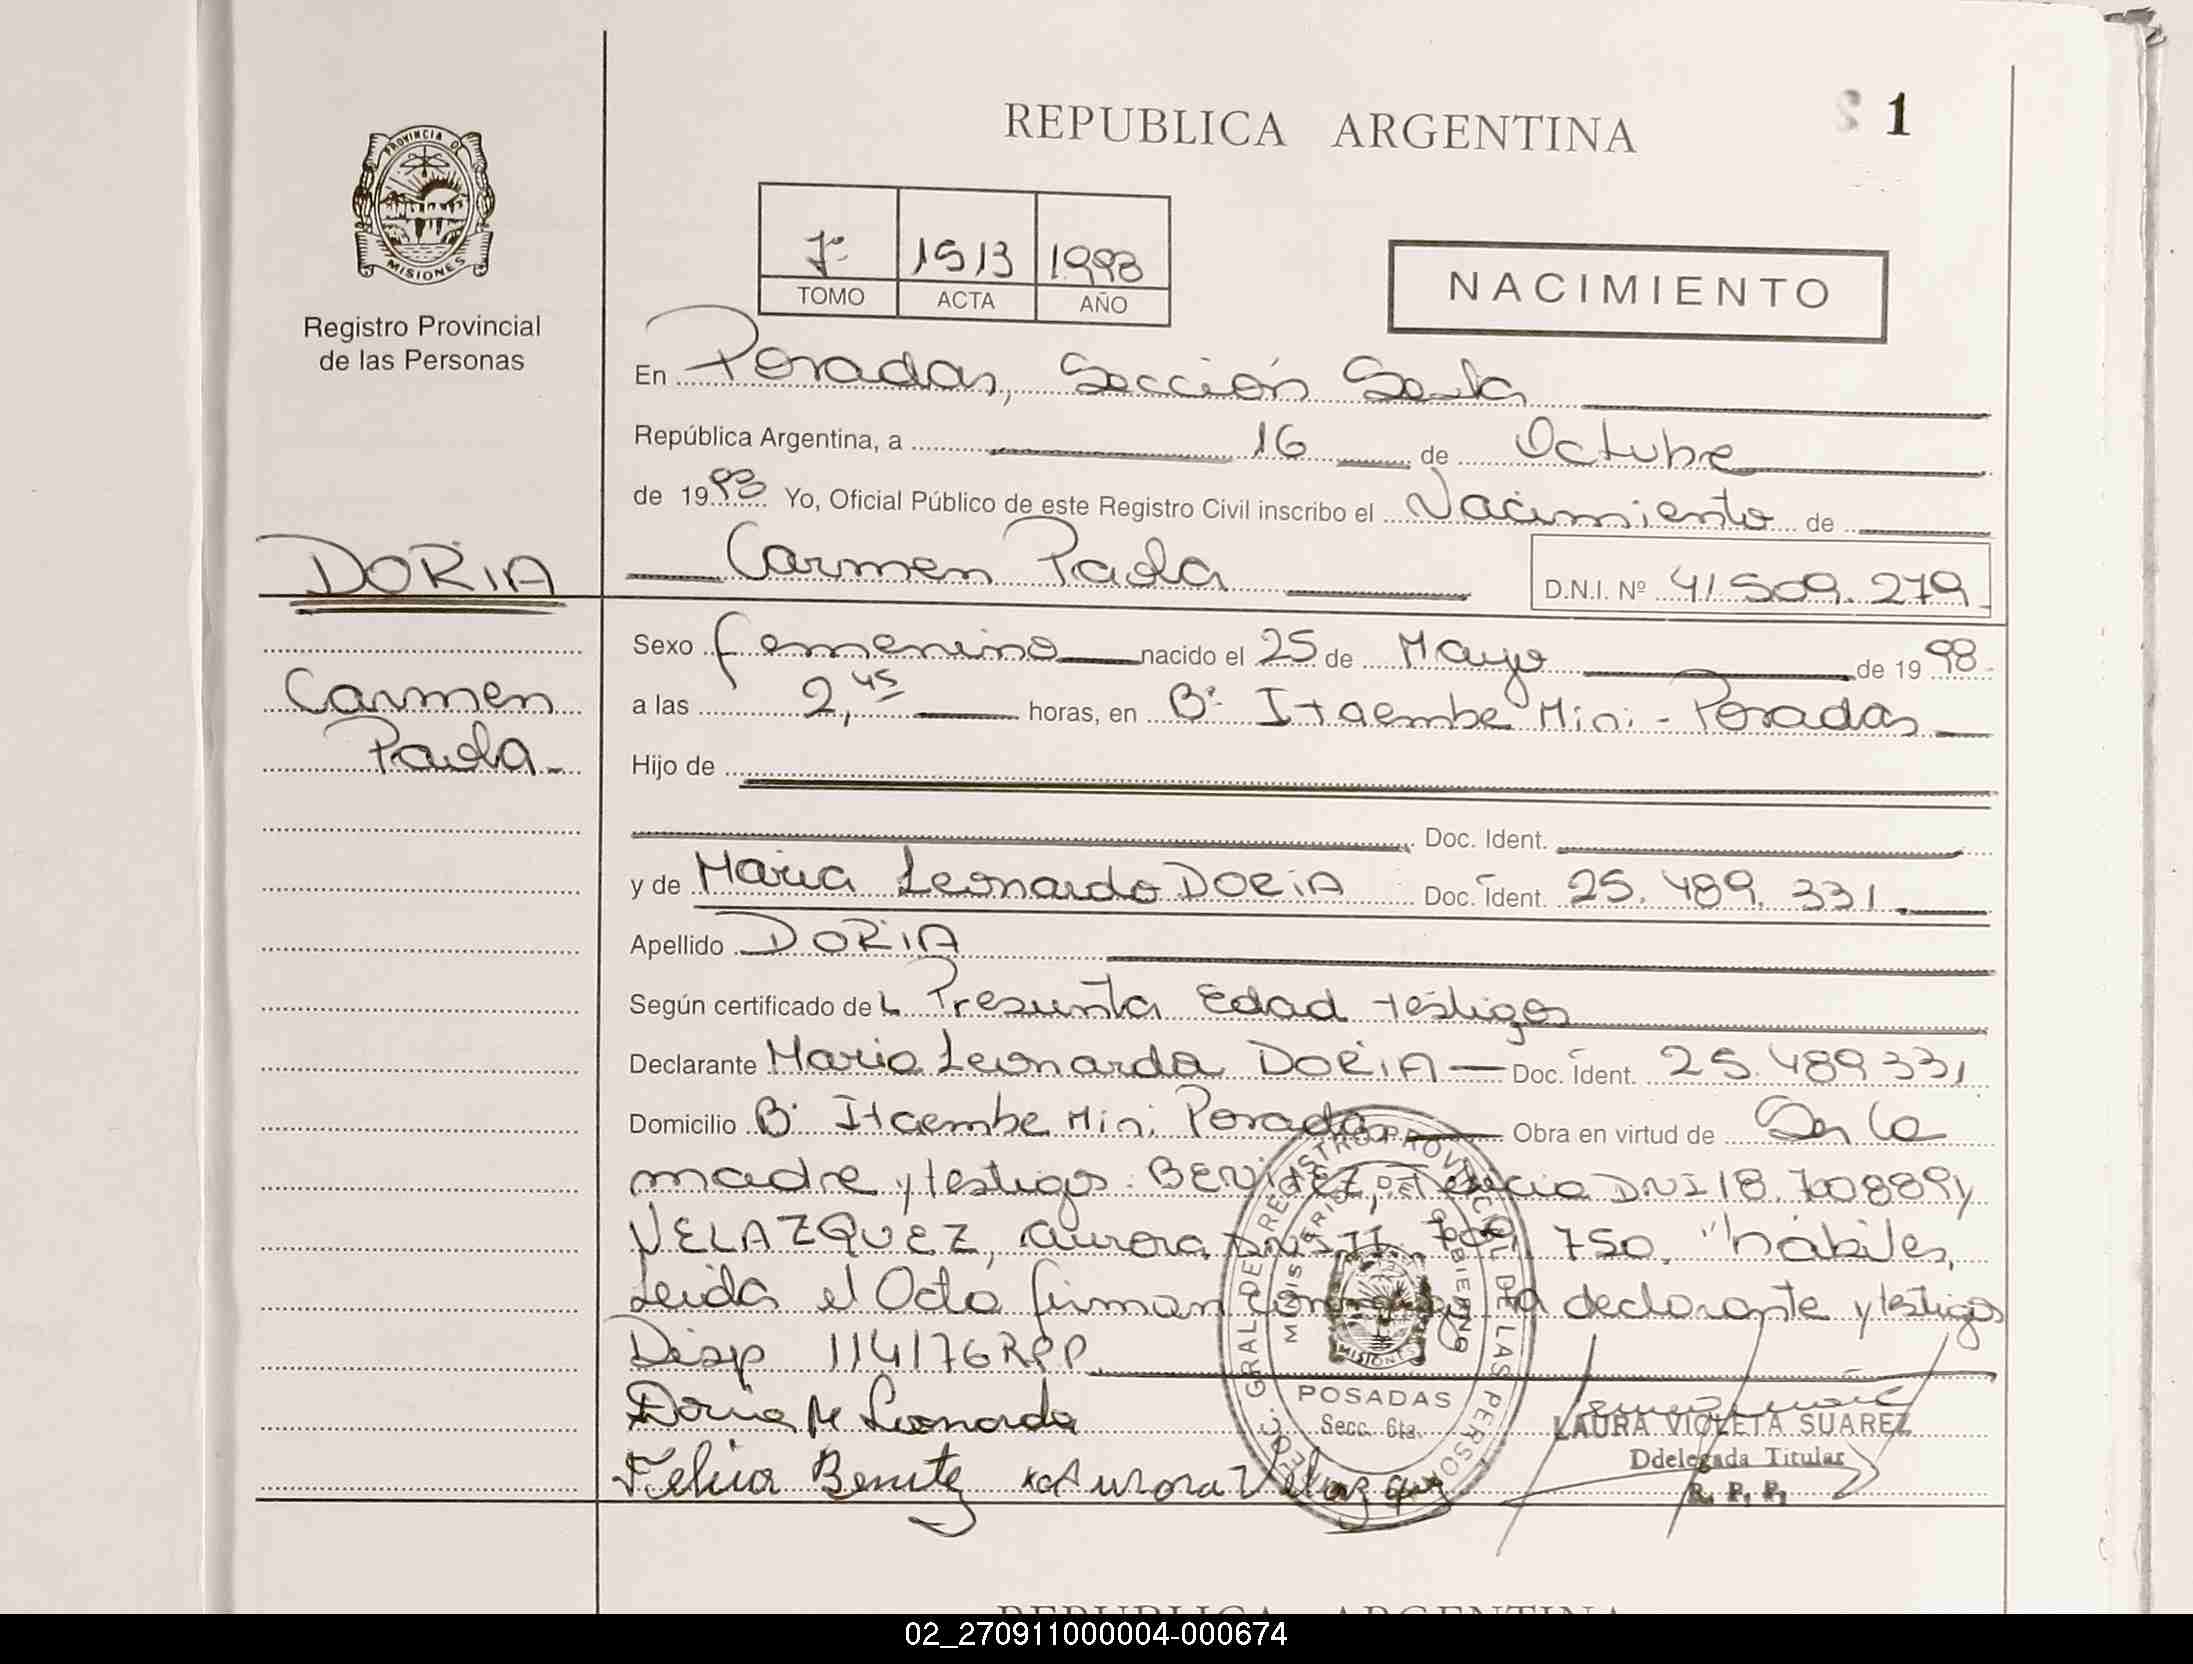 REPUBLICA ARGENTINA
1
PROVINCIA DE MISIONES
Registro Provincial
de las Personas
7º 1513 1.998
TOMO ACTA AÑO
NACIMIENTO
En Posadas, Sección Sexta
República Argentina, a 16 de Octubre
de 1998 Yo, Oficial Público de este Registro Civil inscribo el Nacimiento de
Carmen Paola D.N.I. Nº 41.509.279
DORIA
Carmen
Paola
Sexo femenino nacido el 25 de Mayo de 1998
a las 2,45 horas, en Bº Itaembe Mini - Posadas
Hijo de
Doc. Ident.
y de Maria Leonarda DORIA Doc. Ident. 25.489.331
Apellido DORIA
Según certificado de Presunta Edad testigos
Declarante Maria Leonarda DORIA Doc. Ident. 25.489.331
Domicilio Bº Itaembe Mini Posadas Obra en virtud de Ser la
madre y testigos: BENITEZ, Felicia DNI 18.700889 y
VELAZQUEZ, Aurora DNI 750, "habiles,
Leida el Acta firman conmigo la declarante y testigos
Disp 114/76 RPP.
Doria M Leonarda
Felicia Benitez Aurora Velazquez
MINISTERIO DE GOBIERNO
GRAL DE REGISTRO PROVINCIAL DE LAS PERSONAS
MISIONES
POSADAS
Secc. 6ta.
LAURA VIOLETA SUAREZ
Ddelegada Titular
R. P. P.
REPUBLICA ARGENTINA
02_270911000004-000674